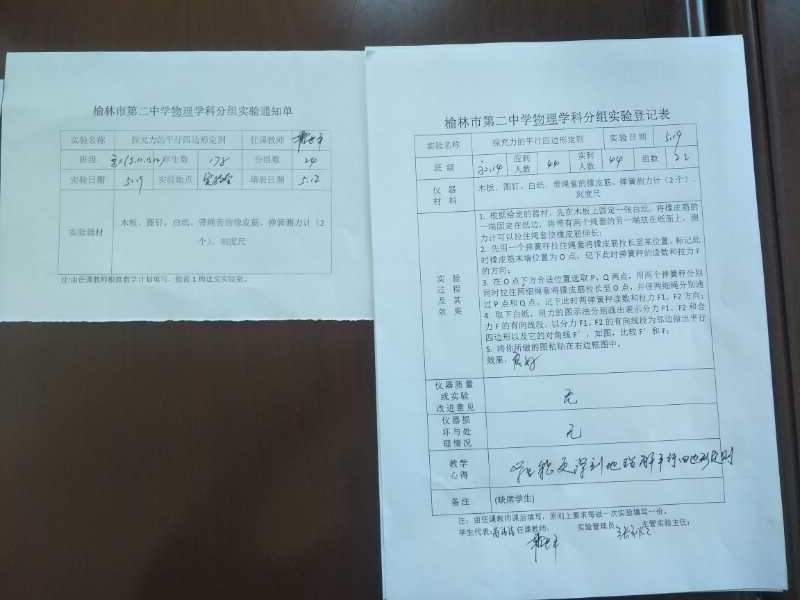 榆林市第二中学物理学科分组实验通知单
实验名称 探究力的平行四边形定则 任课教师
班级 学生数 178 分组数 24
实验日期 5.19 实验地点 实验室 填表日期 5.12
实验器材 木板、图钉、白纸、带绳套的橡皮筋、弹簧测力计（2
个）、刻度尺
注:由任课教师根据教学计划填写，提前1周送交实验室。
榆林市第二中学物理学科分组实验登记表
实验名称 探究力的平行四边形定则 实验日期 5.19
班级 高二.14 应到人数 44 实到人数 44 组数 22
仪器材料 木板、图钉、白纸、带绳套的橡皮筋、弹簧测力计（2个）、
刻度尺
实验过程及其效果
1. 根据给定的器材，先在木板上固定一张白纸，将橡皮筋的
一端固定在纸边，将带有两个绳套的另一端放在纸面上，测
力计可以拉住绳套使橡皮筋伸长;
2. 先用一个弹簧秤拉住绳套将橡皮筋拉长至某位置，标记此
时橡皮筋末端位置为O点，记下此时弹簧秤的读数和拉力F
的方向;
3. 在O点下方合适位置选取P、Q两点，用两个弹簧秤分别
同时拉住两细绳套将橡皮筋拉长至O点，并使两细绳分别通
过P点和Q点，记下此时两弹簧秤读数和拉力F1、F2方向;
4. 取下白纸，用力的图示法分别画出表示分力F1、F2和合
力F的有向线段，以分力F1、F2的有向线段为邻边做出平行
四边形以及它的对角线F'，如图，比较F'和F;
5. 将你所做的图粘贴在右边框图中。
效果: 良好
仪器质量或实验改进意见 无
仪器损坏与处理情况 无
教学心得 学生能更深刻地理解平行四边形定则
备注 (缺席学生)
注：由任课教师课后填写，原则上要求每做一次实验填写一份。
学生代表: 任课教师: 实验管理员: 主管实验主任: